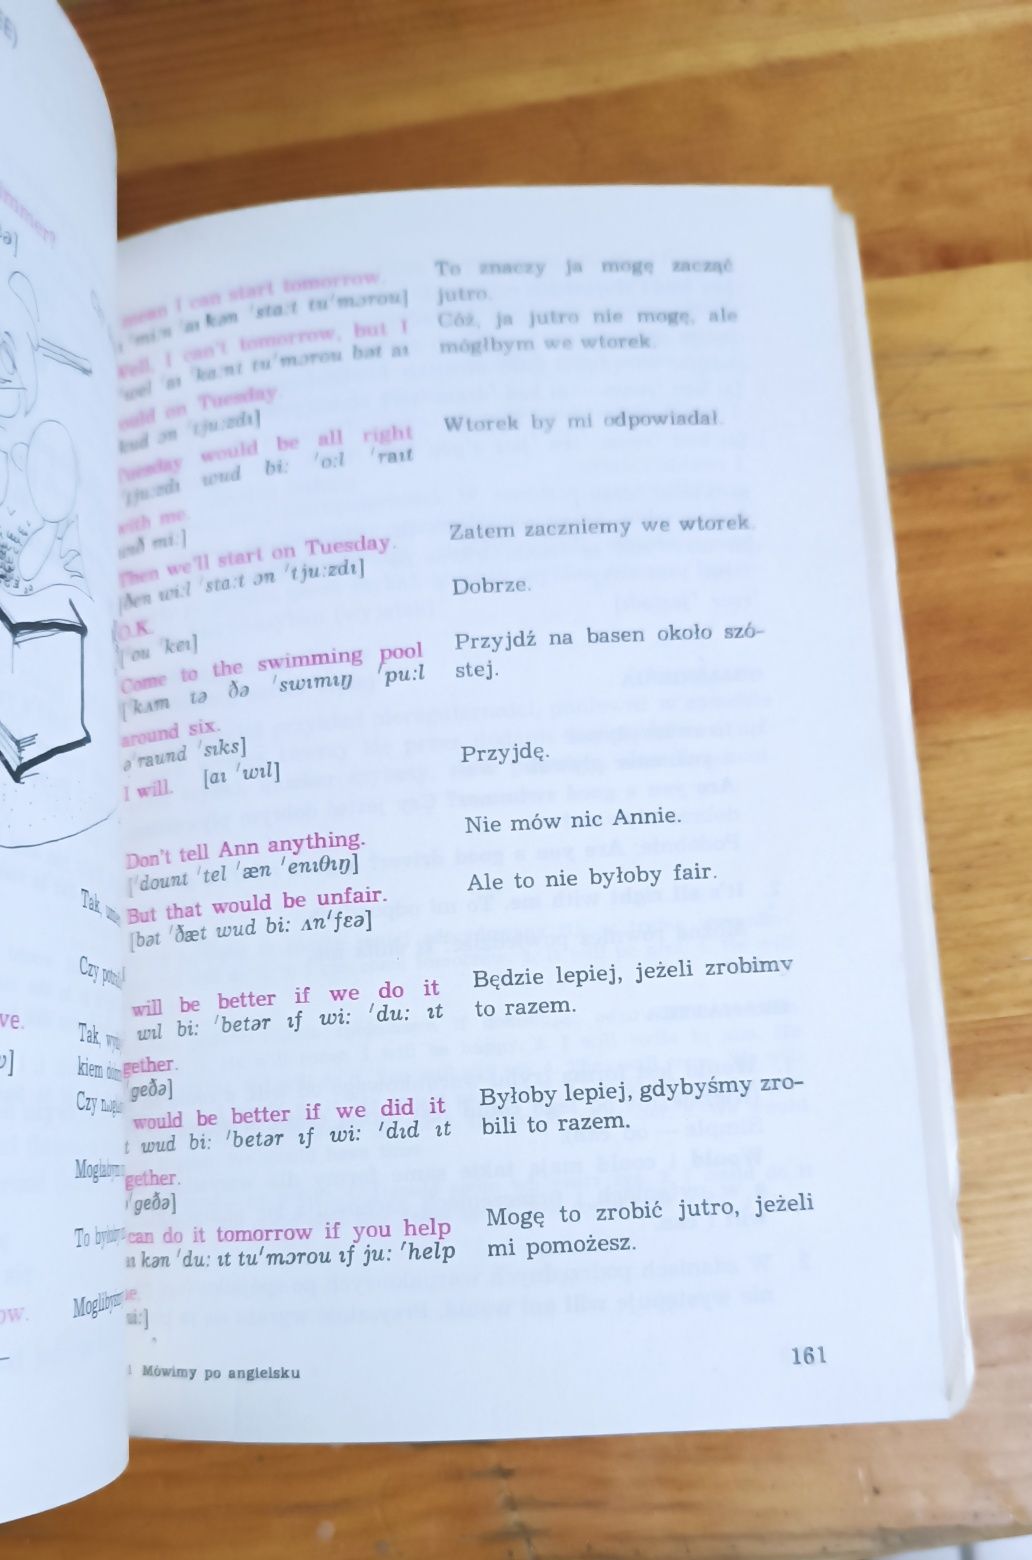 mean I can start tomorrow.
ˈmi:n ˈaɪ kən ˈsta:t tuˈmɔrou]
Well, I can't tomorrow, but I
ˈwel ˈaɪ ˈka:nt tuˈmɔrou bət aɪ
ould on Tuesday.
kud ɔn ˈtju:zdɪ]
Tuesday would be all right
ˈtju:zdɪ wud bi: ˈo:l ˈraɪt
with me.
wɪð mi:]
Then we'll start on Tuesday.
[ðen wi:l ˈsta:t ɔn ˈtju:zdɪ]
O.K.
[ˈou ˈkeɪ]
Come to the swimming pool
[ˈkʌm tə ðə ˈswɪmɪŋ ˈpu:l
around six.
əˈraund ˈsɪks]
I will. [aɪ ˈwɪl]
Don't tell Ann anything.
[ˈdount ˈtel ˈæn ˈenɪθɪŋ]
But that would be unfair.
[bət ˈðæt wud bi: ʌnˈfɛə]
will be better if we do it
wɪl bi: ˈbetər ɪf wi: ˈdu: ɪt
gether.
ˈgeðə]
would be better if we did it
t wud bi: ˈbetər ɪf wi: ˈdɪd ɪt
gether.
ˈgeðə]
can do it tomorrow if you help
aɪ kən ˈdu: ɪt tuˈmɔrou ɪf ju: ˈhelp
me.
mi:]
To znaczy ja mogę zacząć
jutro.
Cóż, ja jutro nie mogę, ale
mógłbym we wtorek.
Wtorek by mi odpowiadał.
Zatem zaczniemy we wtorek.
Dobrze.
Przyjdź na basen około szó-
stej.
Przyjdę.
Nie mów nic Annie.
Ale to nie byłoby fair.
Będzie lepiej, jeżeli zrobimy
to razem.
Byłoby lepiej, gdybyśmy zro-
bili to razem.
Mogę to zrobić jutro, jeżeli
mi pomożesz.
Mówimy po angielsku
161
Tak,
Czy
ve.
Tak,
kiem
Czy
To
ow.